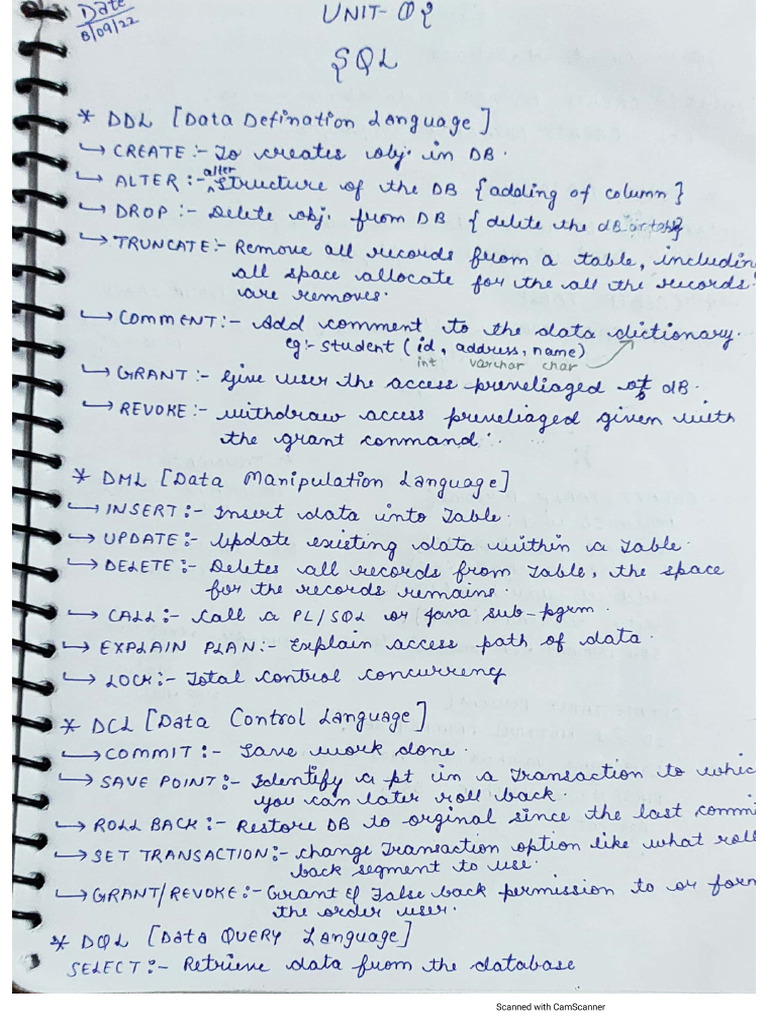 Date
8/09/22
UNIT-02
SQL
* DDL [Data Defination Language]
↳ CREATE:- To creates obj. in DB.
↳ ALTER:- alter structure of the DB {adding of column}
↳ DROP:- Delete obj. from DB {delete the dB or table}
↳ TRUNCATE:- Remove all records from a table, includin
all space allocate for the all the records
are removes.
↳ COMMENT:- Add comment to the data dictionary.
eg:- student (id, address, name)
int varchar char
↳ GRANT:- Give user the access preveliaged of dB.
↳ REVOKE:- withdraw access preveliaged given with
the grant command.
* DML [Data Manipulation Language]
↳ INSERT:- Insert data into Table.
↳ UPDATE:- Update existing data within a Table.
↳ DELETE:- Deletes all records from Table, the space
for the records remains.
↳ CALL:- Call a PL/SQL or Java sub-pgrm.
↳ EXPLAIN PLAN:- Explain access path of data.
↳ LOCK:- Total control concurrency
* DCL [Data Control Language]
↳ COMMIT:- Save work done.
↳ SAVE POINT:- Identify a pt in a Transaction to whic
you can later roll back.
↳ ROLL BACK:- Restore DB to orginal since the last commi
↳ SET TRANSACTION:- change Transaction option like what roll
back segment to use.
↳ GRANT/REVOKE:- Grant & False back permission to or form
the order user.
* DQL [Data QUERY Language]
SELECT:- Retrieve data from the database
Scanned with CamScanner